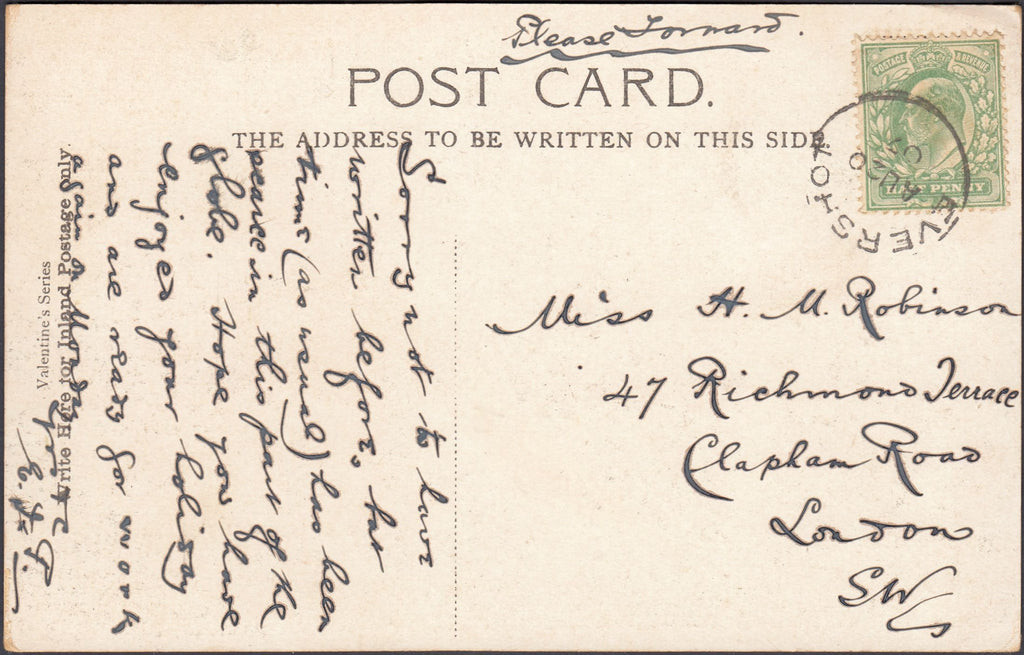 Please Forward.
POST CARD.
THE ADDRESS TO BE WRITTEN ON THIS SIDE.
POSTAGE & REVENUE
HALF PENNY
EVERSHOT
AU 20
07
Sorry not to have
written before, but
time (as usual) has been
scarce in this part of the
globe. Hope you have
enjoyed your holiday
and are ready for work
again on Monday
Valentine's Series
Write Here for Inland Postage only.
Miss H. M. Robinson
47 Richmond Terrace
Clapham Road
London
SW